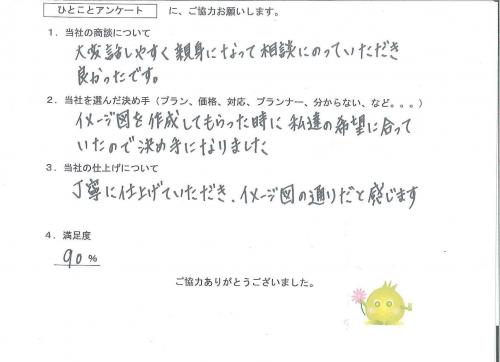 ひとことアンケート に、ご協力お願いします。
1．当社の商談について
大変話しやすく親身になって相談にのっていただき
良かったです。
2．当社を選んだ決め手（プラン、価格、対応、プランナー、分からない、など。。。）
イメージ図を作成してもらった時に私達の希望に合って
いたので決め手になりました
3．当社の仕上げについて
丁寧に仕上げていただき、イメージ図の通りだと感じます
4．満足度
90 %
ご協力ありがとうございました。